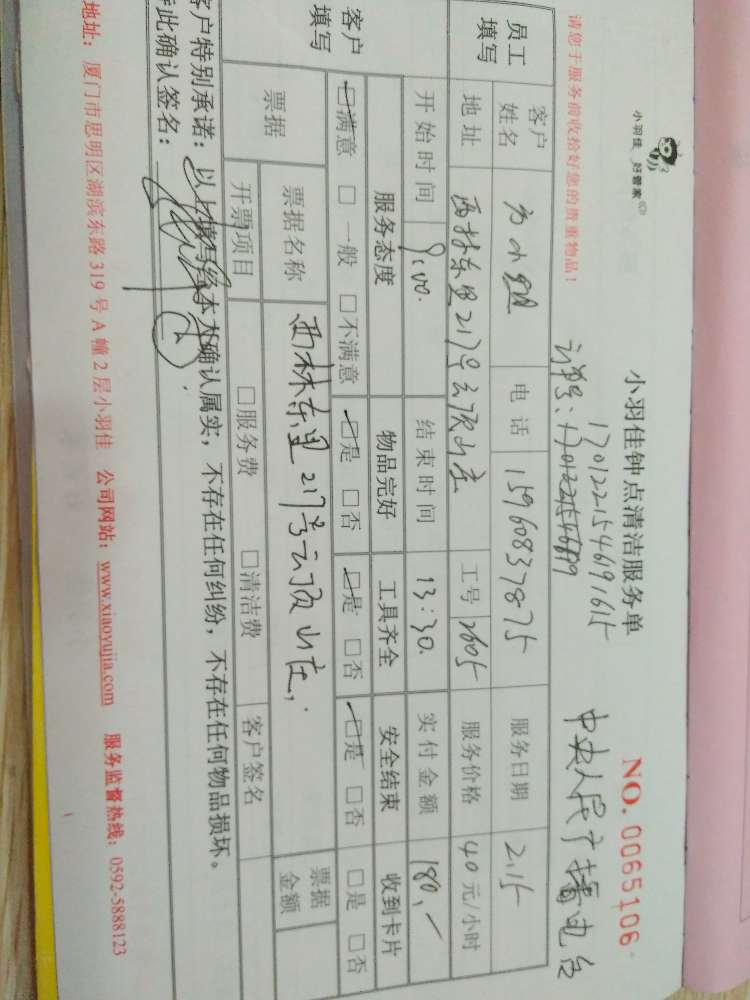 小羽佳 好管家
小羽佳钟点清洁服务单
NO. 0065106
17012215469161615
中央人民广播电台
请您于服务前收拾好您的贵重物品！
员工填写
客户姓名
电话 15960837875
服务日期 2.15
地址 西林东里217号云顶山庄
工号 2605
服务价格 40元/小时
开始时间 9:00.
结束时间 13:30.
实付金额 180.-
客户填写
服务态度 物品完好 工具齐全 安全结束 收到卡片
☑满意 □一般 □不满意 ☑是 □否 ☑是 □否 ☑是 □否 □是 □否
票据
票据名称 西林东里217号云顶山庄,
票据金额
开票项目 □服务费 □清洁费 客户签名
客户特别承诺：以上填写经本人确认属实，不存在任何纠纷，不存在任何物品损坏。
此确认签名：
地址：厦门市思明区湖滨东路319号A幢2层小羽佳 公司网站：www.xiaoyujia.com 服务监督热线：0592-5888123